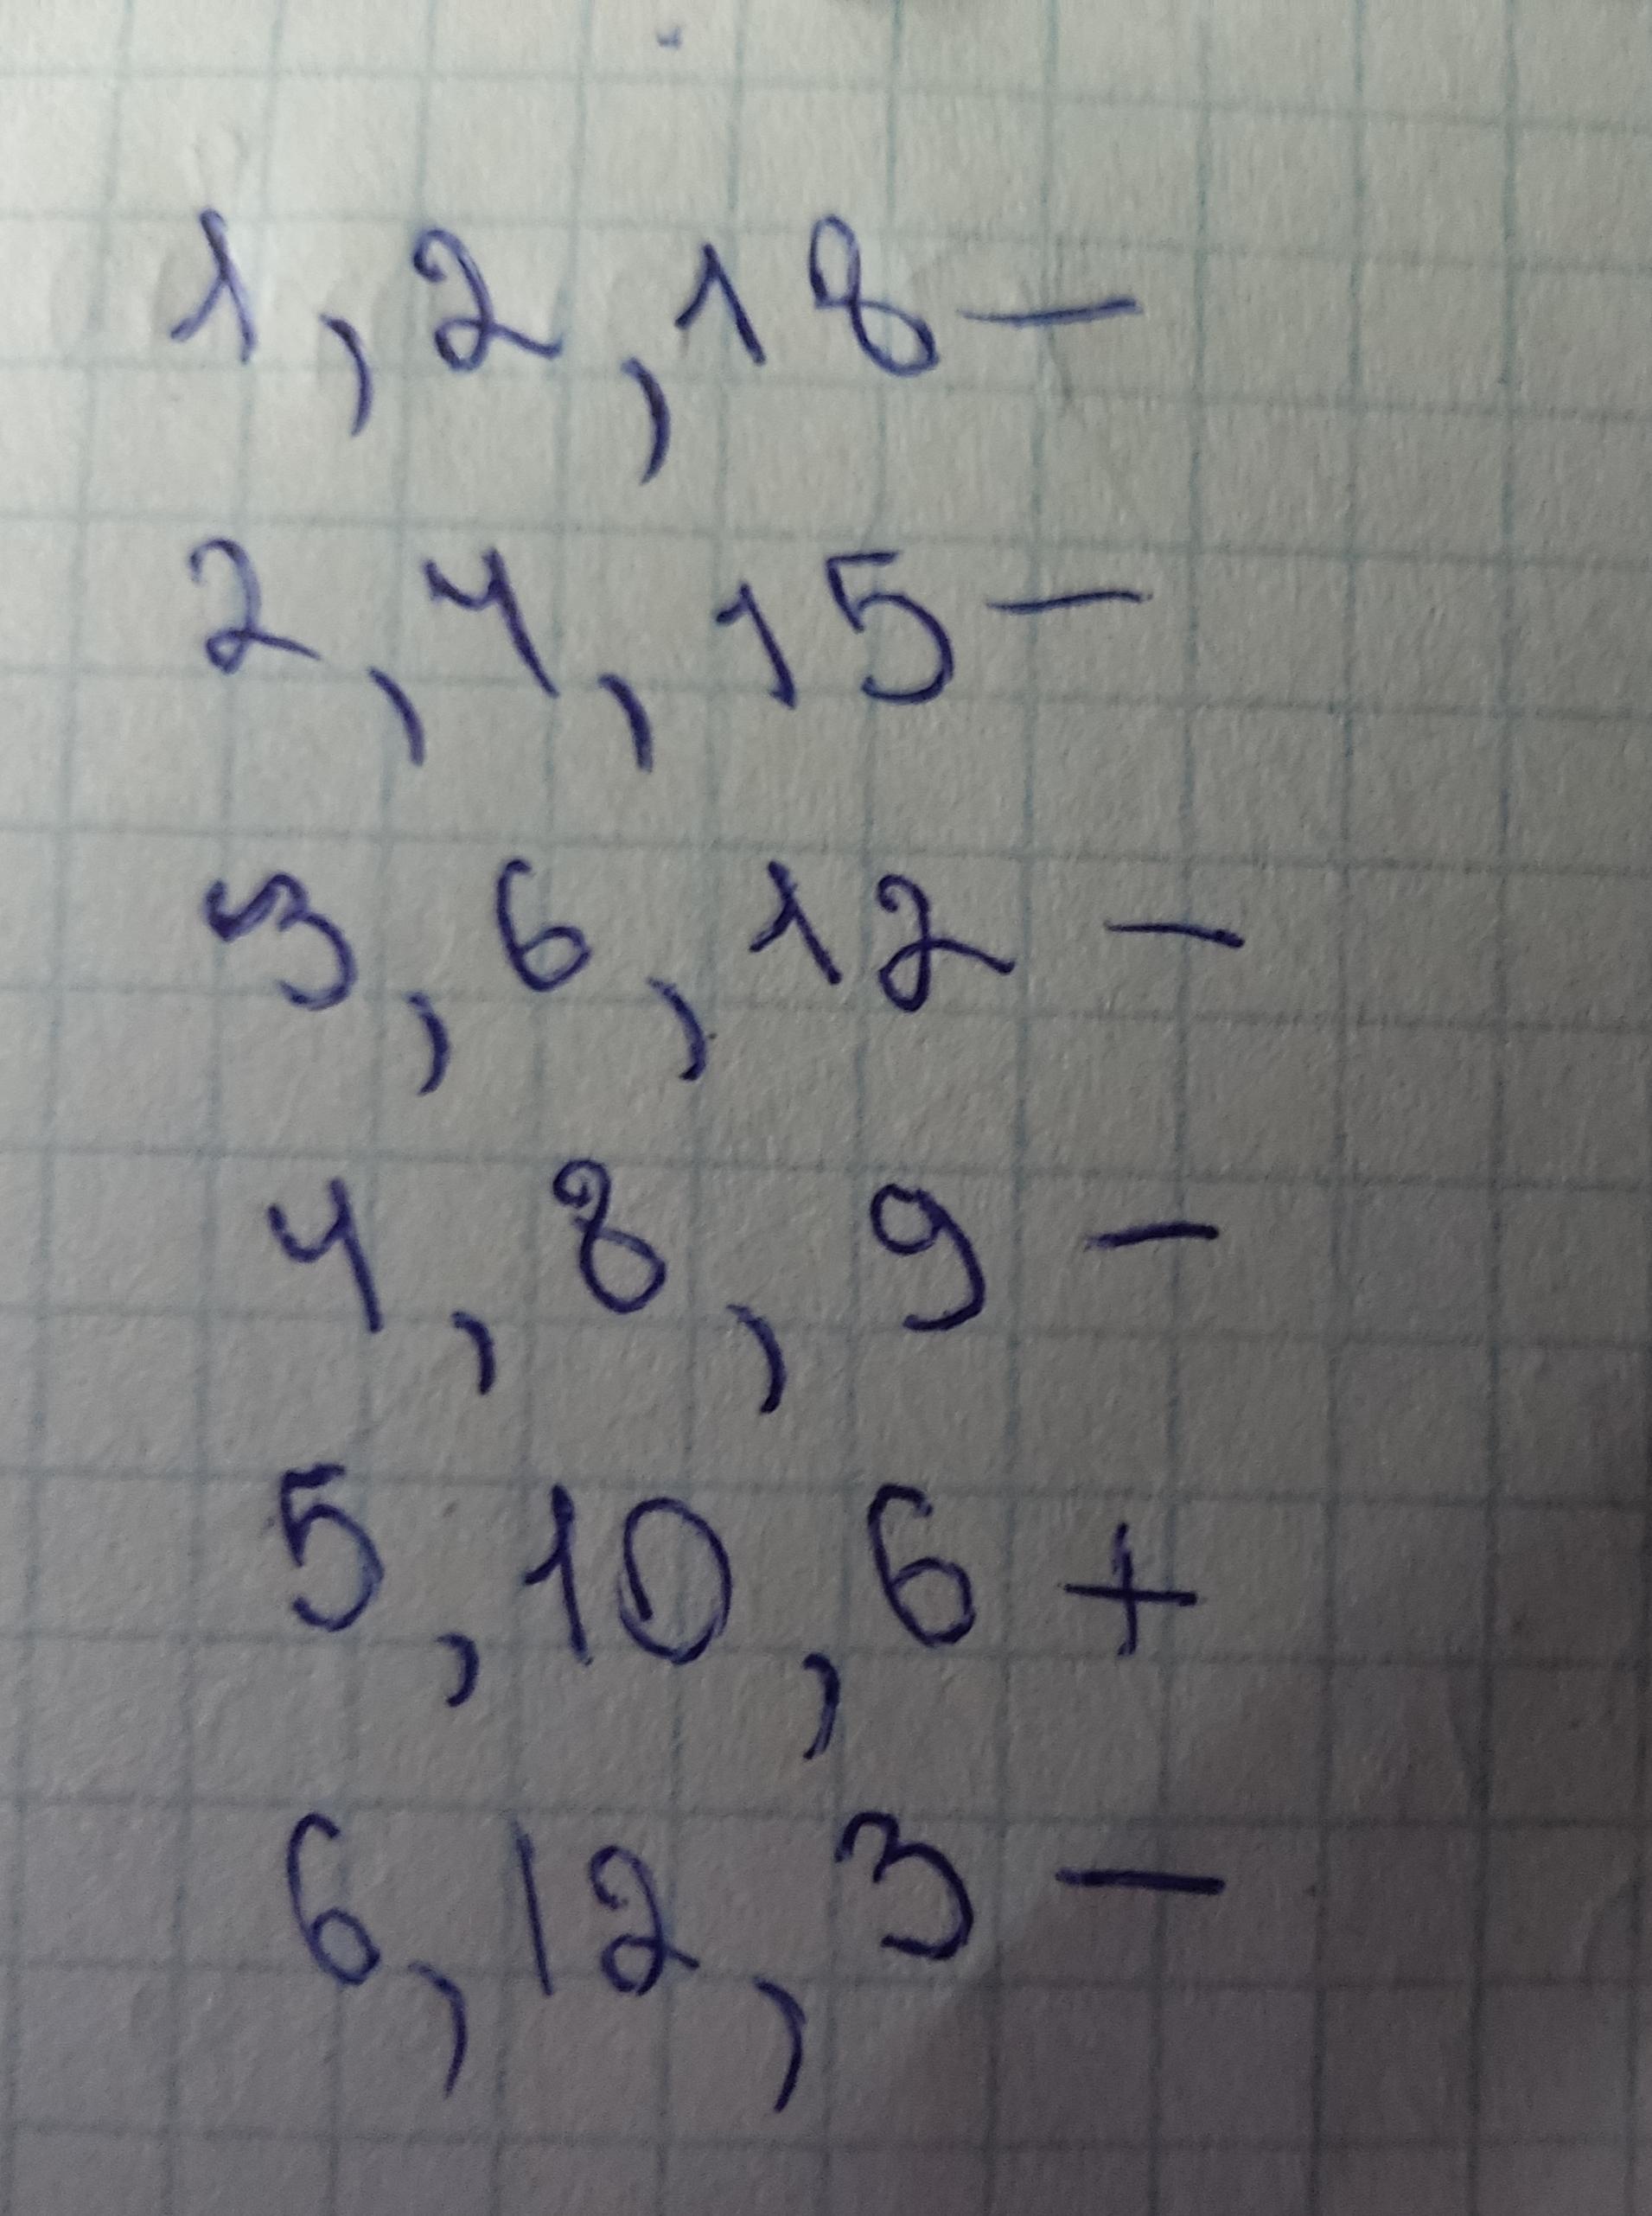 1, 2, 18 —
2, 4, 15 —
3, 6, 12 —
4, 8, 9 —
5, 10, 6 +
6, 12, 3 —